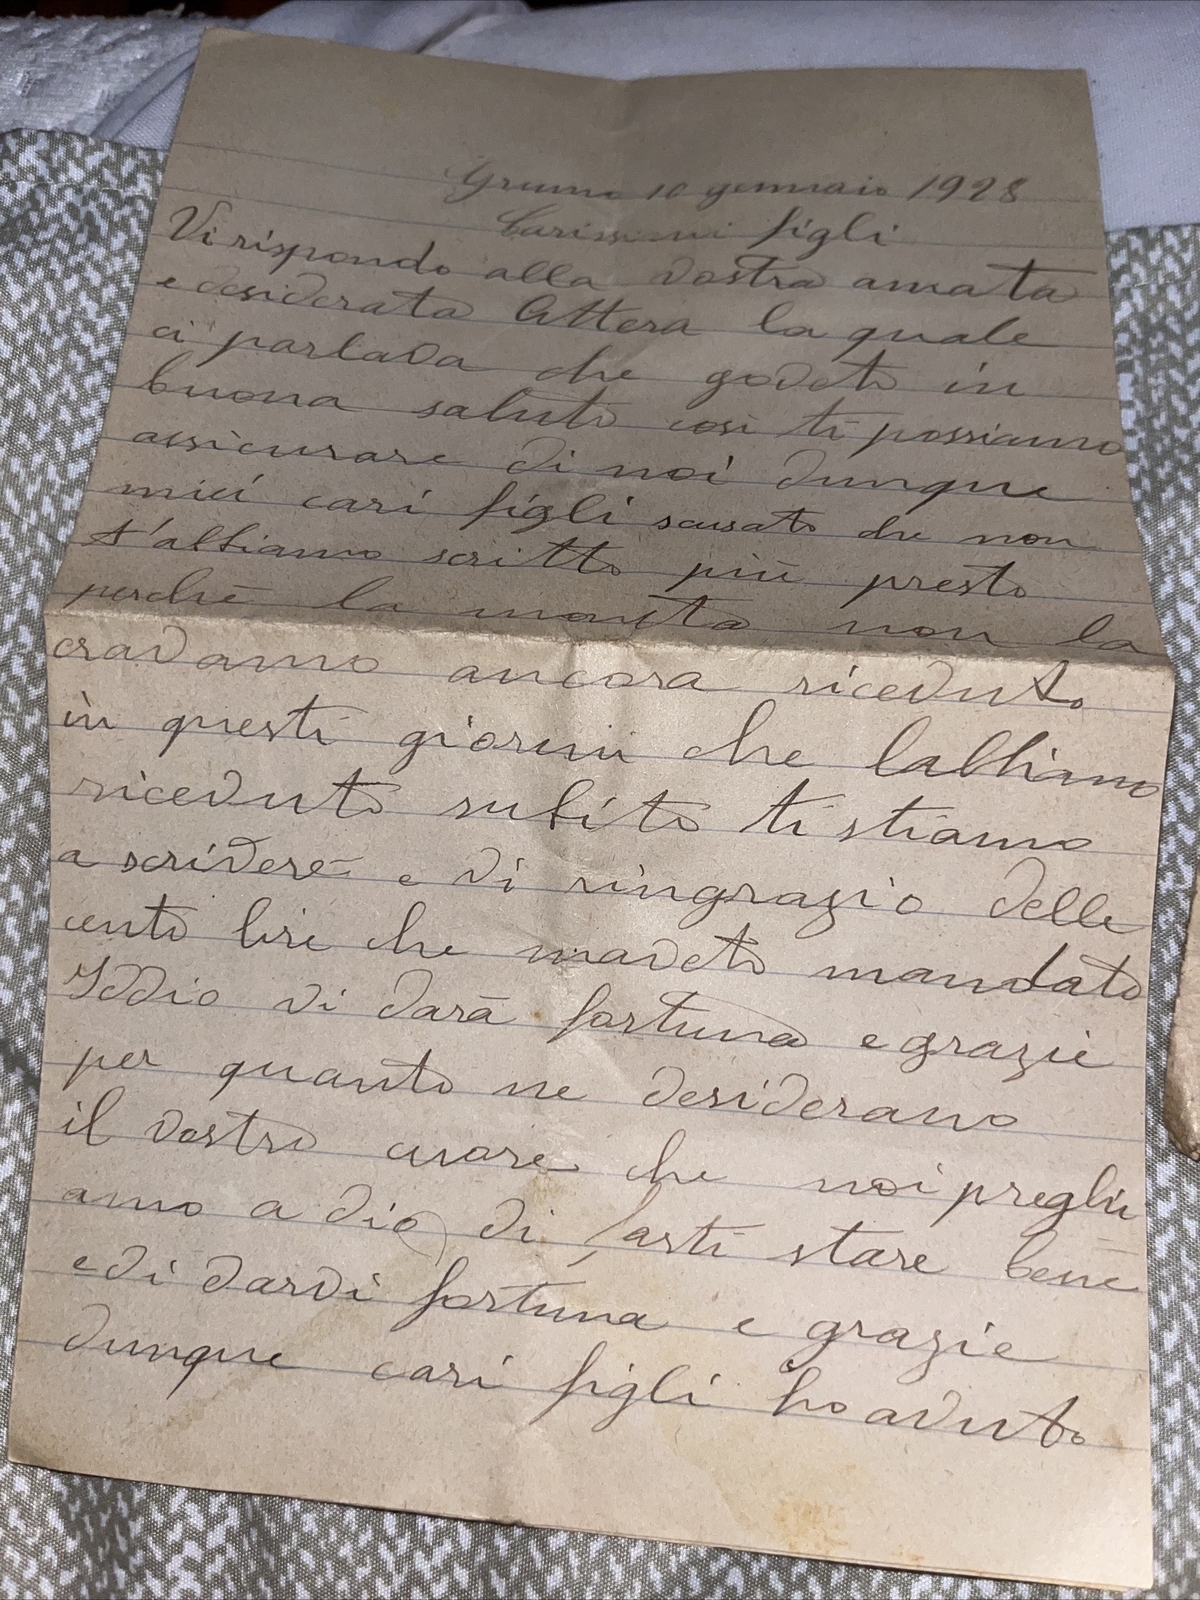 Grumo 10 gennaio 1928
Carissimi figli
Vi rispondo alla vostra amata
e desiderata lettera la quale
ci parlava che godete in
buona salute così ti possiamo
assicurare di noi dunque
miei cari figli scusate che non
t'abbiamo scritto più presto
perchè la moneta non la
eravamo ancora ricevuto
in questi giorni che labbiamo
ricevuto subito ti stiamo
a scrivere e vi ringrazio delle
cento lire che mavete mandato
Iddio vi darà fortuna e grazie
per quanto ne desiderano
il vostro cuore che noi preghi
amo a dio di farti stare bene
e di darvi fortuna e grazie
dunque cari figli ho avuto